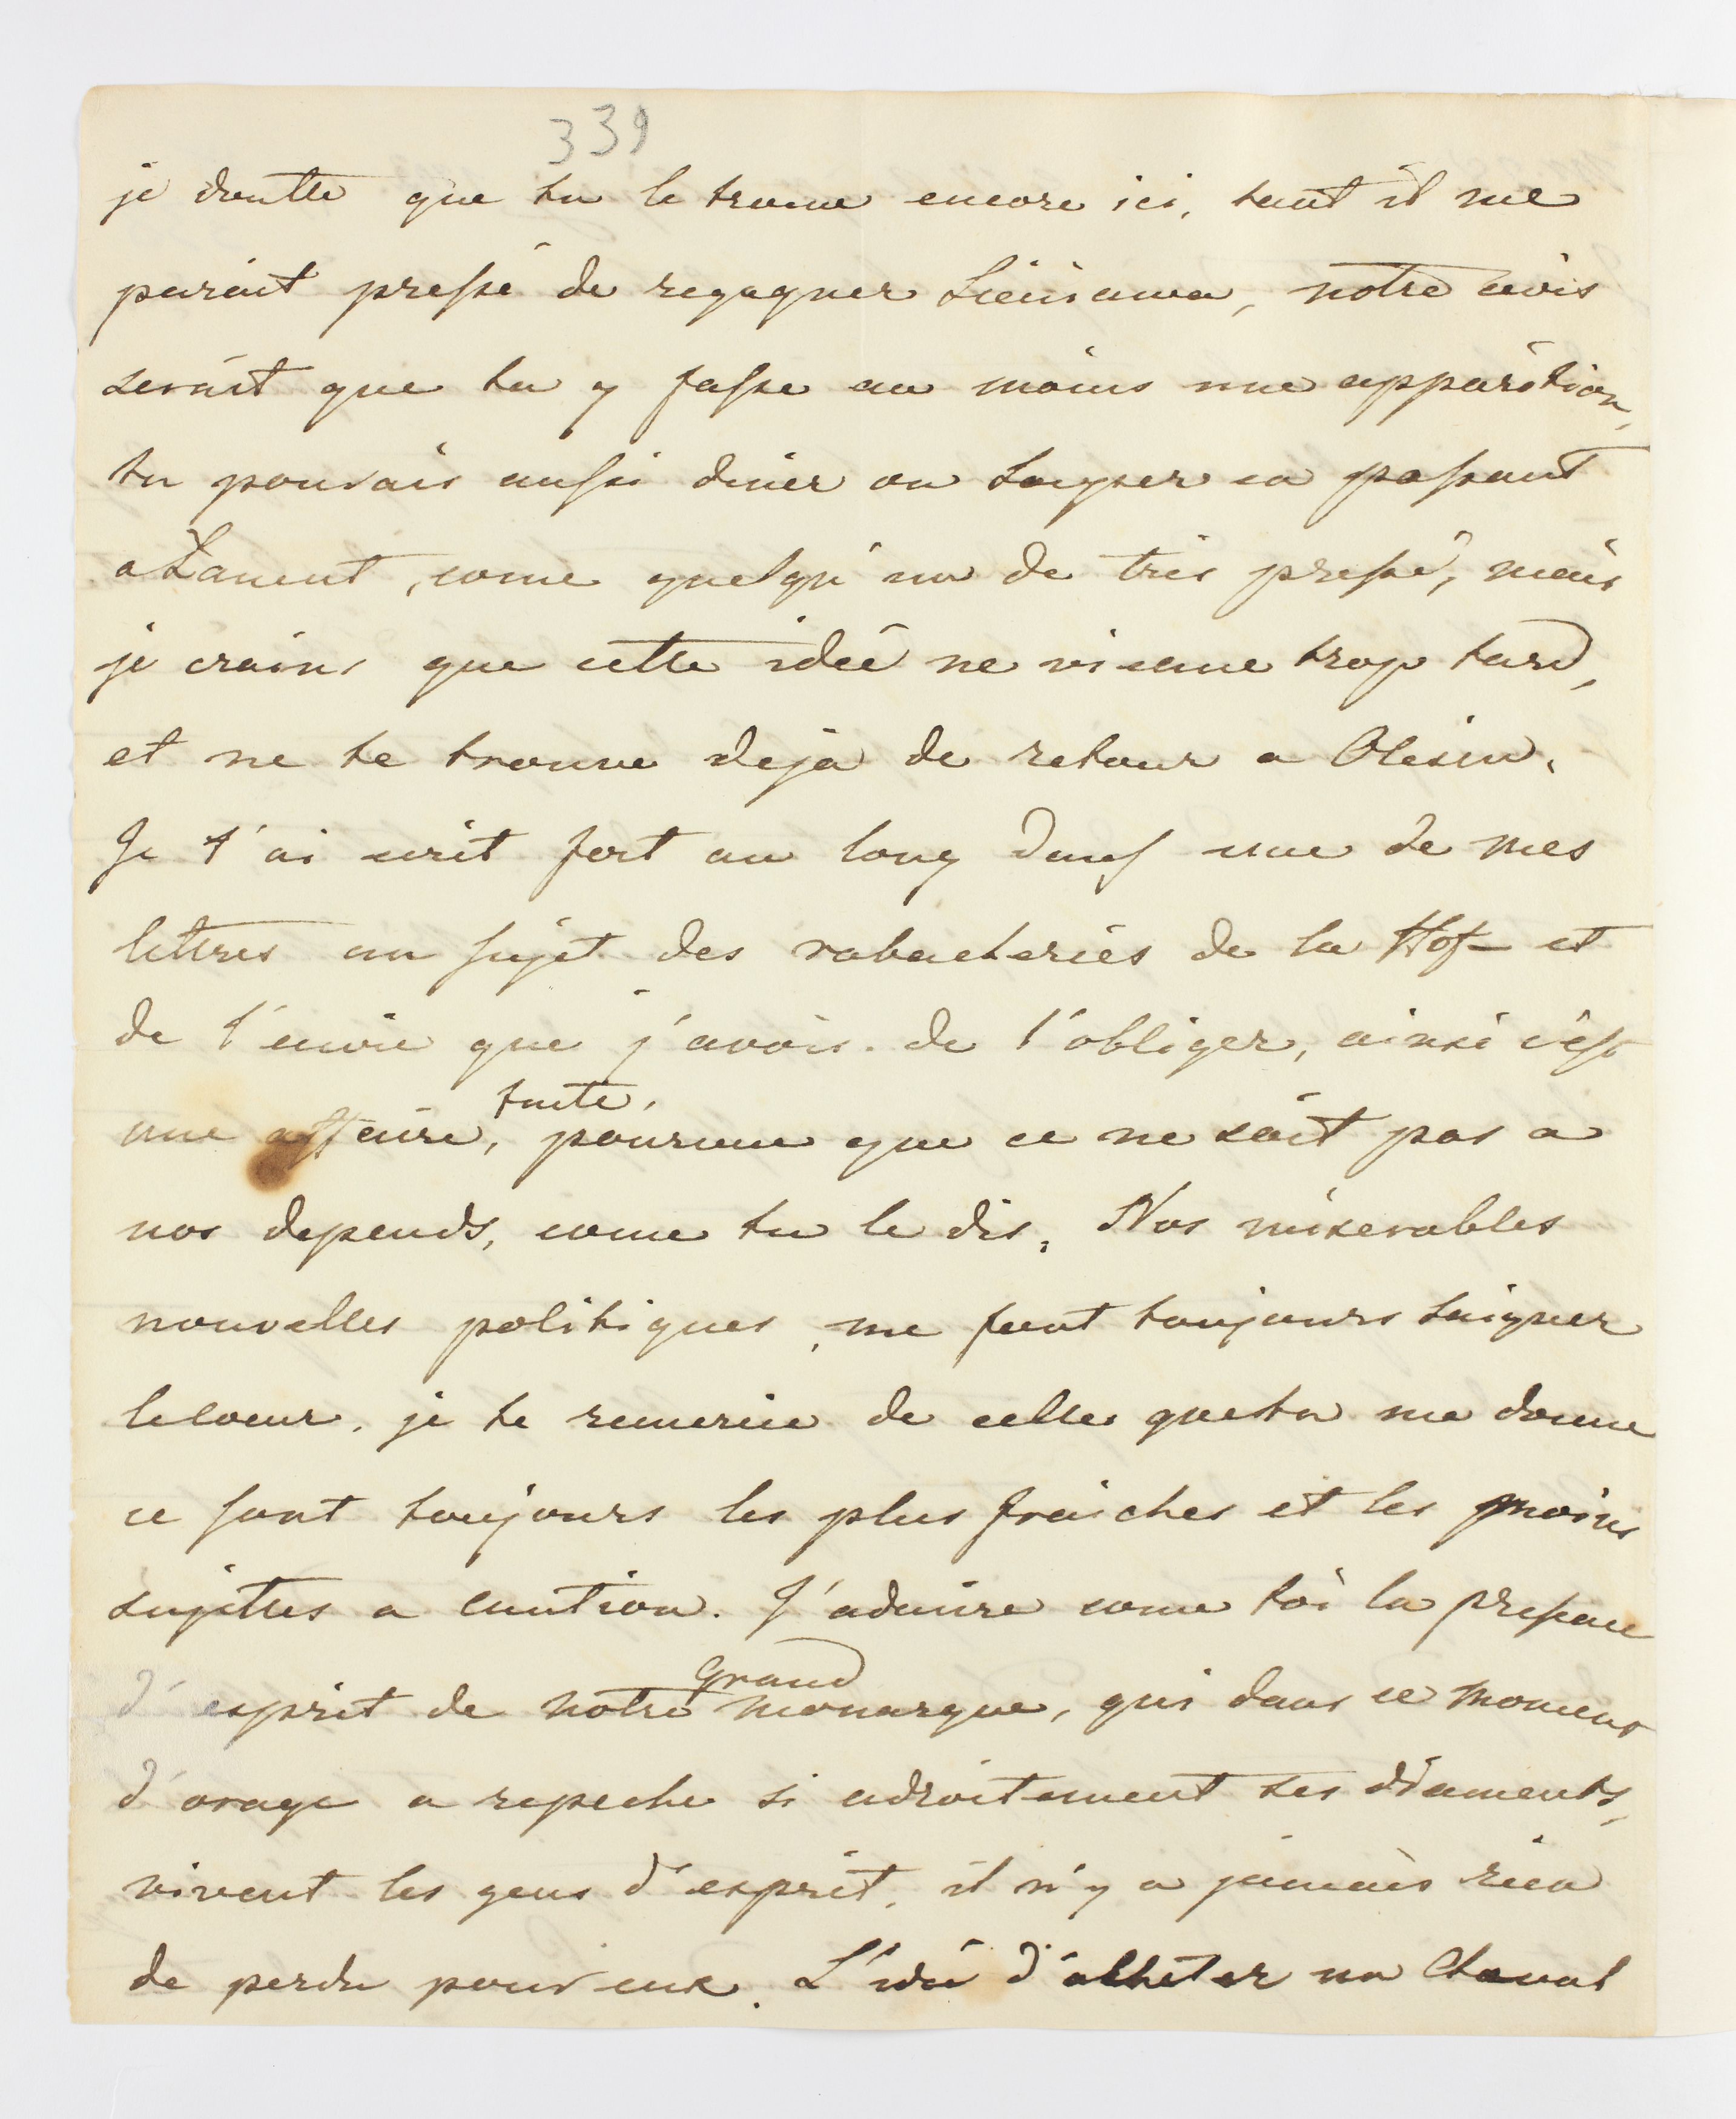 339
je doutte que tu le trouve encore ici, tant il me
parait pressé de regagner Siéniawa, notre avis
serait que tu y fasse au moins une apparition,
tu pouvais aussi diner ou souper en passant
a Lancut, come quelqu'un de très pressé, mais
je crains que cette idée ne vienne trop tard,
et ne te trouve deja de retour a Olesin.
Je t'ai ecrit fort au long dans une de mes
lettres au sujet des rabacheries de la Hof- et
de l'envie que j'avois de l'obliger, ainsi c'est
faite,
une affaire, pourvue que ce ne soit pas a
nos depends, come tu le dis. Nos miserables
nouvelles politiques, me font toujours saigner
le coeur. je te remercie de celles que tu me donne
ce sont toujours les plus fraiches et les moins
sujettes a caution. J'admire come toi la presence
Grand
d'esprit de notre monarque, qui dans ce moment
d'orage a repeche si adroitement ses diaments,
vivent les gens d'esprit, il n'y a jamais rien
de perdu pour eux. L'idée d'acheter un Cheval